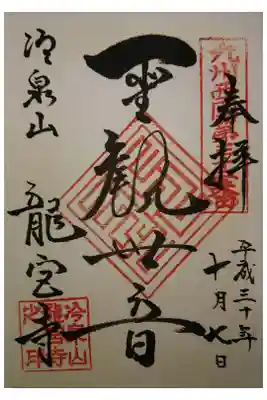 奉拝
平成三十年
十月七日
聖観世音
冷泉山
龍宮寺
冷泉山
龍宮寺
之印